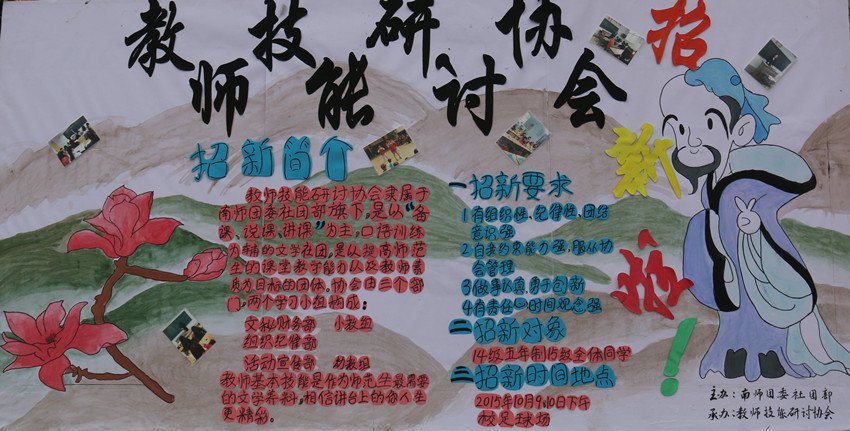 教 技 研 协
师 能 讨 会
招
新
啦
！
招新简介
教师技能研讨协会隶属于
南师团委社团部旗下,是以“备
课、说课、讲课”为主,口语训练
为辅的文学社团,是以提高师范
生的课堂教学能力以及教师素
质为目标的团体。协会由三个部
门,两个学习小组构成：
文秘财务部 小教组
组织纪律部
活动宣传部 幼教组
教师基本技能是作为师范生最需要
的文学养料,相信讲台上的你人生
更精彩。
一招新要求
1有组织性、纪律性、团结
意识强
2自我约束能力强,服从协
会管理
3做事认真,勇于创新
4有责任心时间观念强
二招新对象
14级五年制15级全体同学
三招新时间地点
2015年10月9,10日下午
校足球场
主办：南师团委社团部
承办：教师技能研讨协会